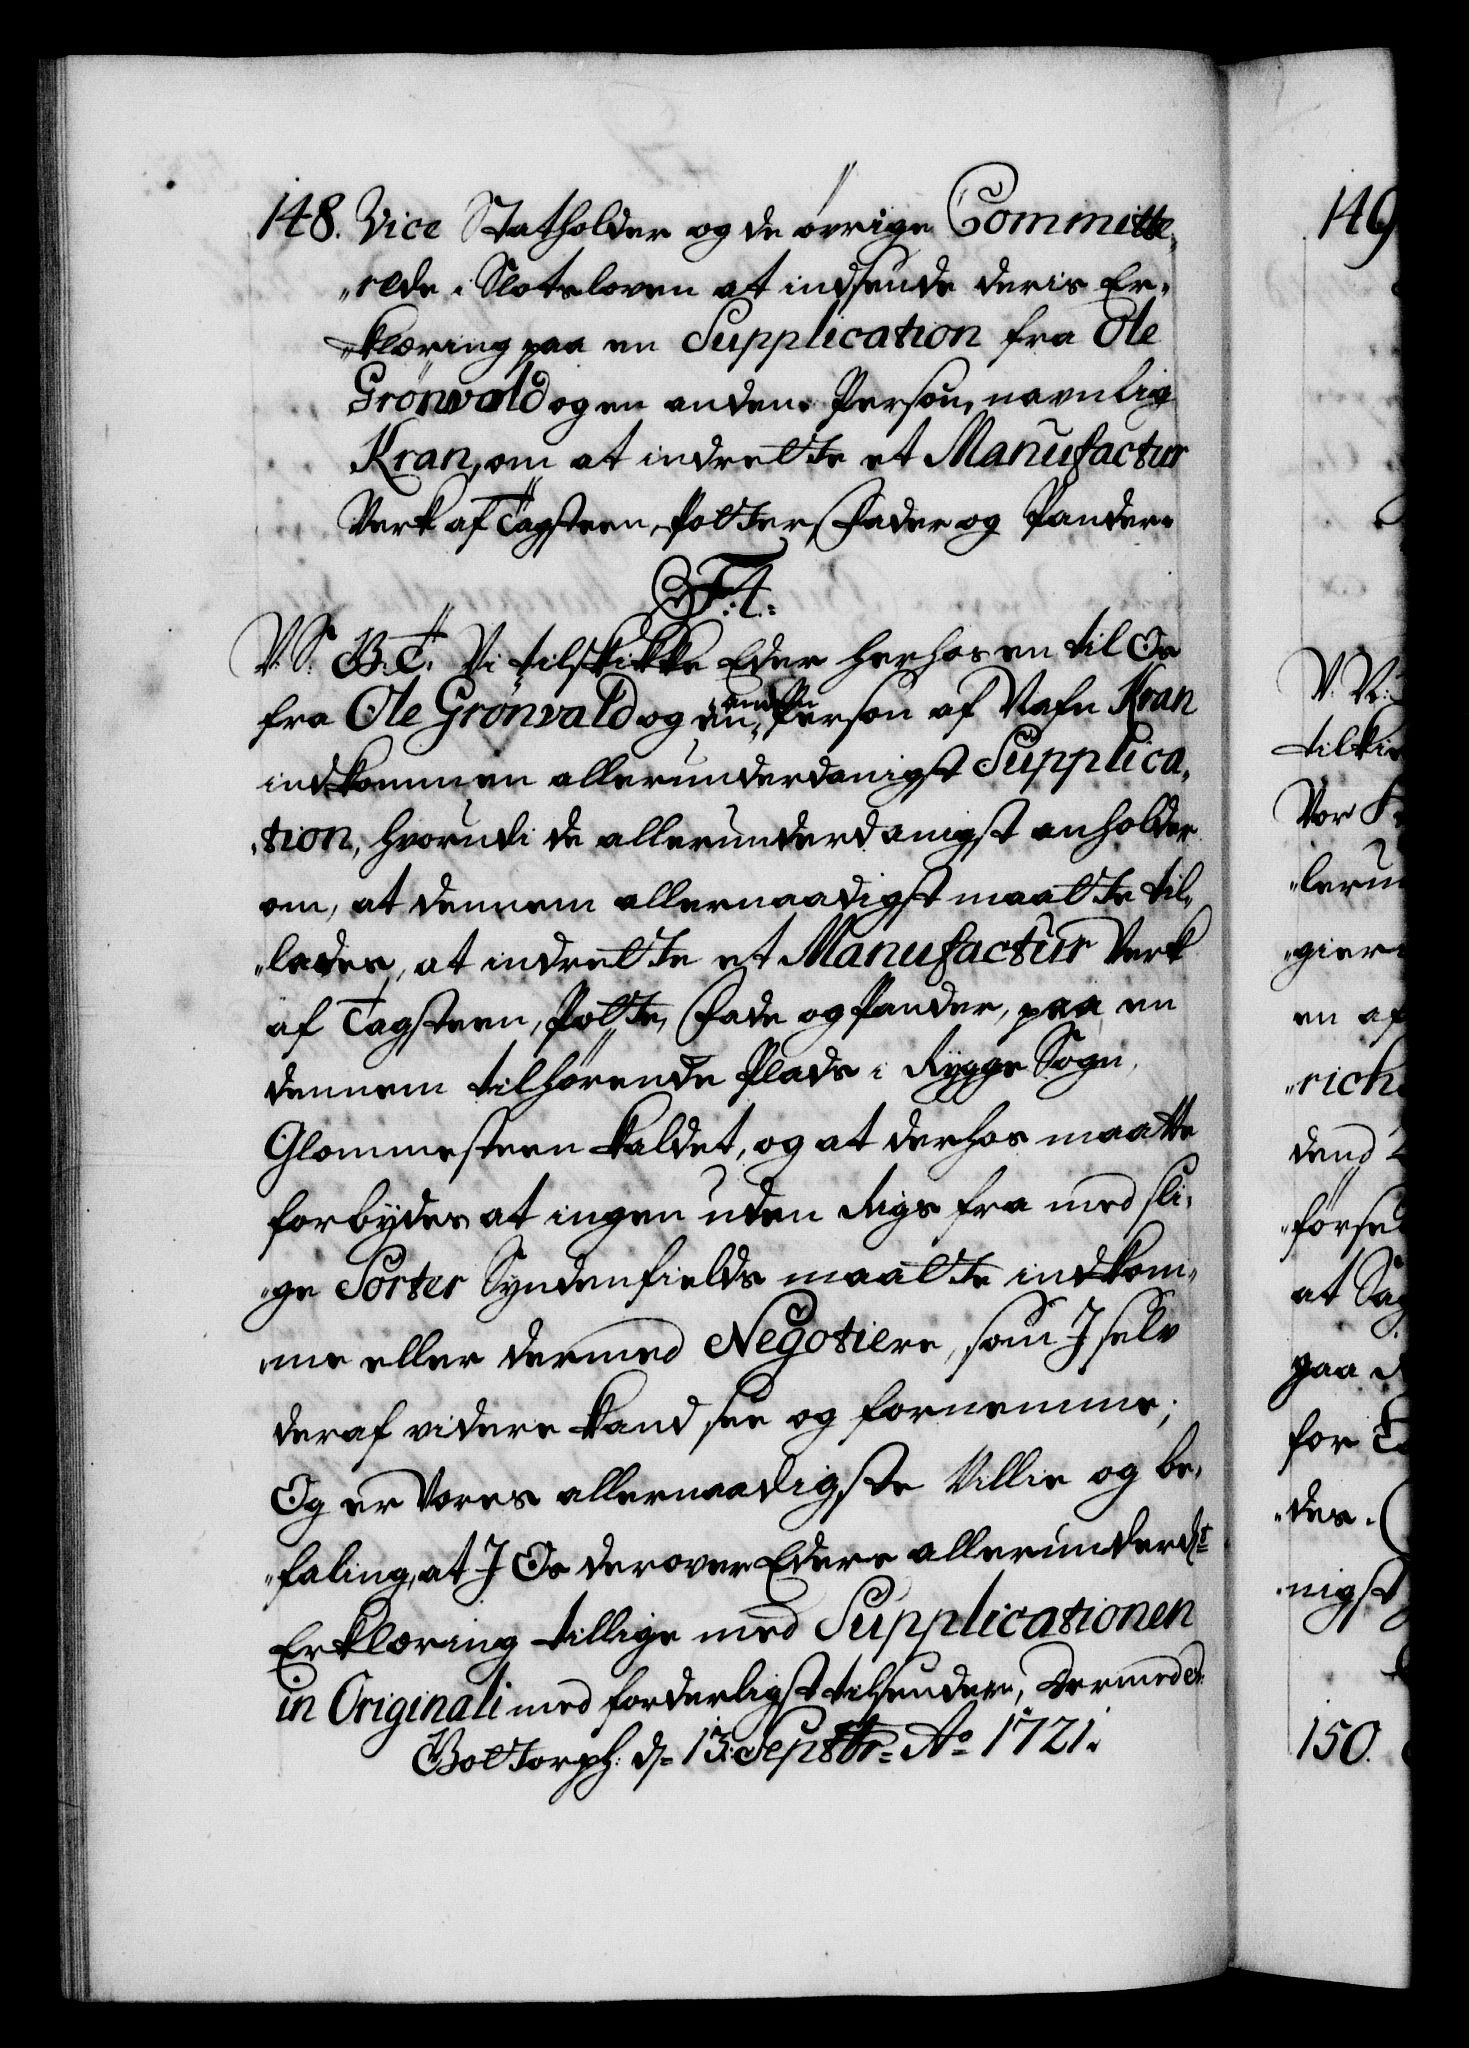 148. Vice Statholder og de öfrige Committe,
„rede i Slotsloven at indsende deris Er„
„klæring paa en Supplication fra Ole
Grönvald og en anden Person, navnlig
Kran, om at indrette et Manufactur
Verk af Tagsteen, Potter, Fader og Pander.
F. 4.
V. S. B. T. Vi tilskikke Eder herhos en til Os
fra Ole Grönvald og en anden Person af Nafn Kran
indkommen allerunderdanigst Supplica„
„tion, hvorudi de allerunderdanigst anholder
om, at dennem allernaadigst maatte til„
„lades, at indrette et Manufactur Verk
af Tagsteen, Potte, Fade og Pander, paa en
dennem tilhörende Plads i Rygge Sogn,
Glommesteen kaldet, og at derhos maatte
forbydes at ingen uden Rigs fra med sli„
„ge Sorter Syndenfields maatte indkom„
„me eller dermed Negotiere, som I selv
deraf videre kand see og fornemme;
Og er Vores allernaadigste Villie og be„
„faling, at I Os derover Eders allerunderdst
Erklæring tillige med Supplicationen
in Originali med forderligst tilsender, Dermed et.
Gottorph: d= 13: Septbr= Ao 1721.
149
V. V.
tilkie
Vor
„leru
„gier
en af
„rich
dend
„förse
at Sag
paa
for
„des.
„nigst
150.